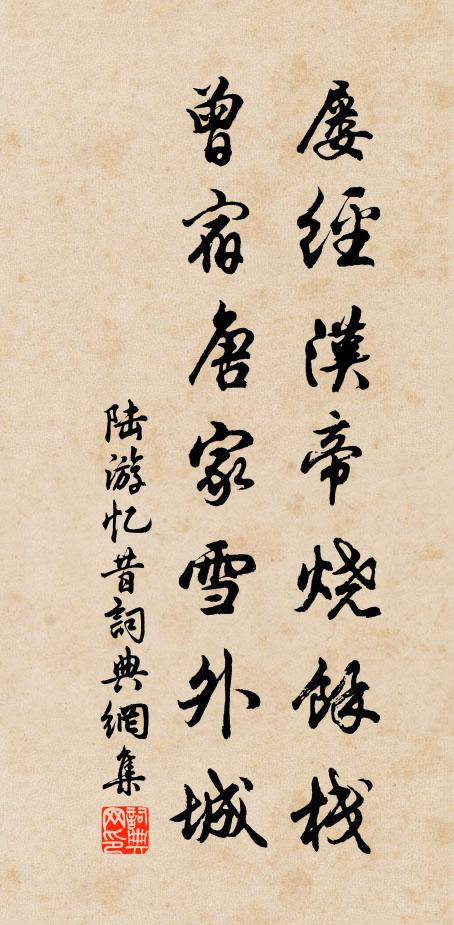 屡經漢帝烧餘栈
曾宿唐家雪外城
陆游忆昔詞典網集
詞典网印